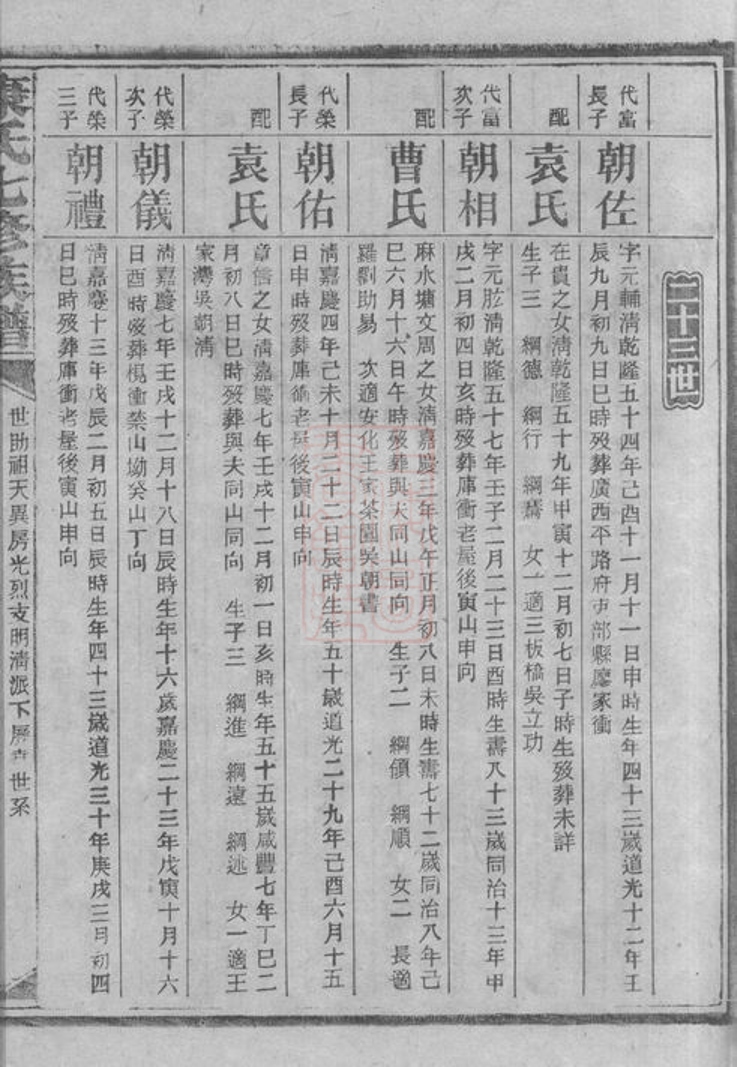 二十三世
代富長子
朝佐
字元輔清乾隆五十四年己酉十一月十一日申時生年四十三歲道光十二年壬
辰九月初九日巳時歿葬廣西平路府 部縣廖家衝
配
袁氏
在貴之女清乾隆五十九年甲寅十二月初七日子時生歿葬未詳
生子三 綱德 綱行 綱 女一適三板橋吳立功
代富次子
朝相
字元 清乾隆五十七年壬子二月二十三日酉時生壽八十三歲同治十三年甲
戌二月初四日亥時歿葬庫衝老屋後寅山申向
配
曹氏
麻水塘文周之女清嘉慶三年戊午正月初八日未時生壽七十二歲同治八年己
巳六月十六日午時歿葬與夫同山同向 生子二 綱領 綱順 女二 長適
羅劉助易 次適安化王家茶園吳朝書
代榮長子
朝佑
清嘉慶四年己未十月二十二日辰時生年五十歲道光二十九年己酉六月十五
日申時歿葬庫衝老屋後寅山申向
配
袁氏
章 之女清嘉慶七年壬戌十二月初一日亥時生年五十五歲咸豐七年丁巳二
月初八日巳時歿葬與夫同山同向 生子三 綱進 綱遠 綱述 女一適王
家灣吳朝清
代榮次子
朝儀
清嘉慶七年壬戌十二月十八日辰時生年十六歲嘉慶二十三年戊寅十月十六
日酉時歿葬 衝禁山坳癸山丁向
代榮三子
朝禮
清嘉慶十三年戊辰二月初五日辰時生年四十三歲道光三十年庚戌三月初四
日巳時歿葬庫衝老屋後寅山申向
氏七修族譜
世助祖天異房光烈支明清派下 世系